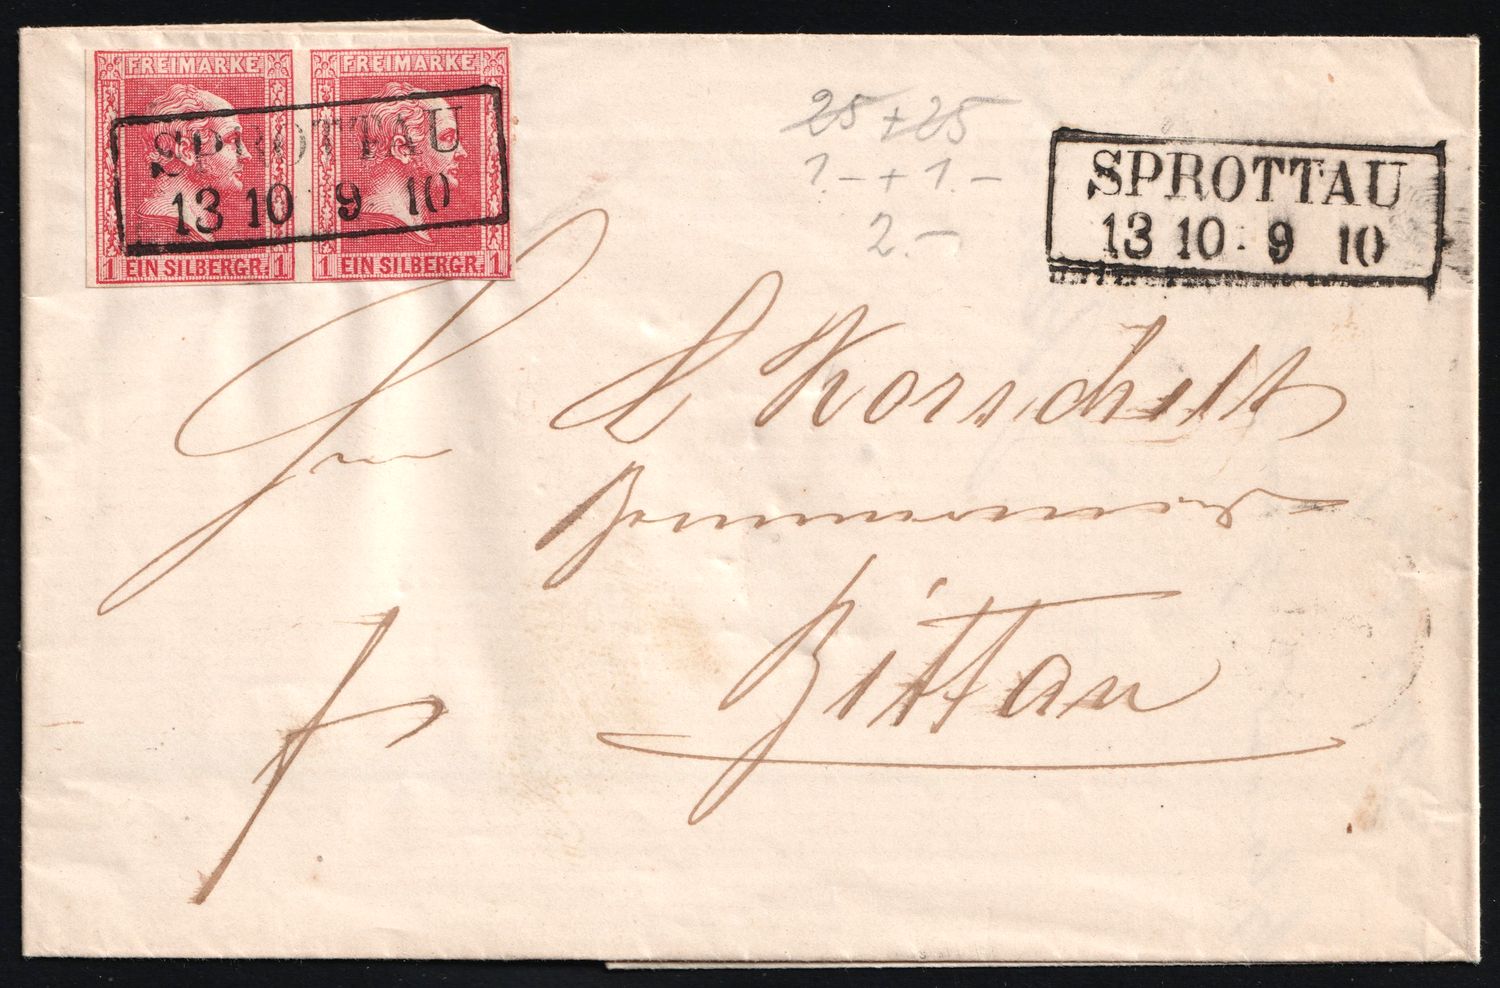 FREIMARKE FREIMARKE
SPROTTAU
13 10 9 10
1 EIN SILBERGR. 1 1 EIN SILBERGR. 1
25 + 25
1.- + 1.-
2.-
SPROTTAU
13 10 · 9 10
Korschelt
Zittau